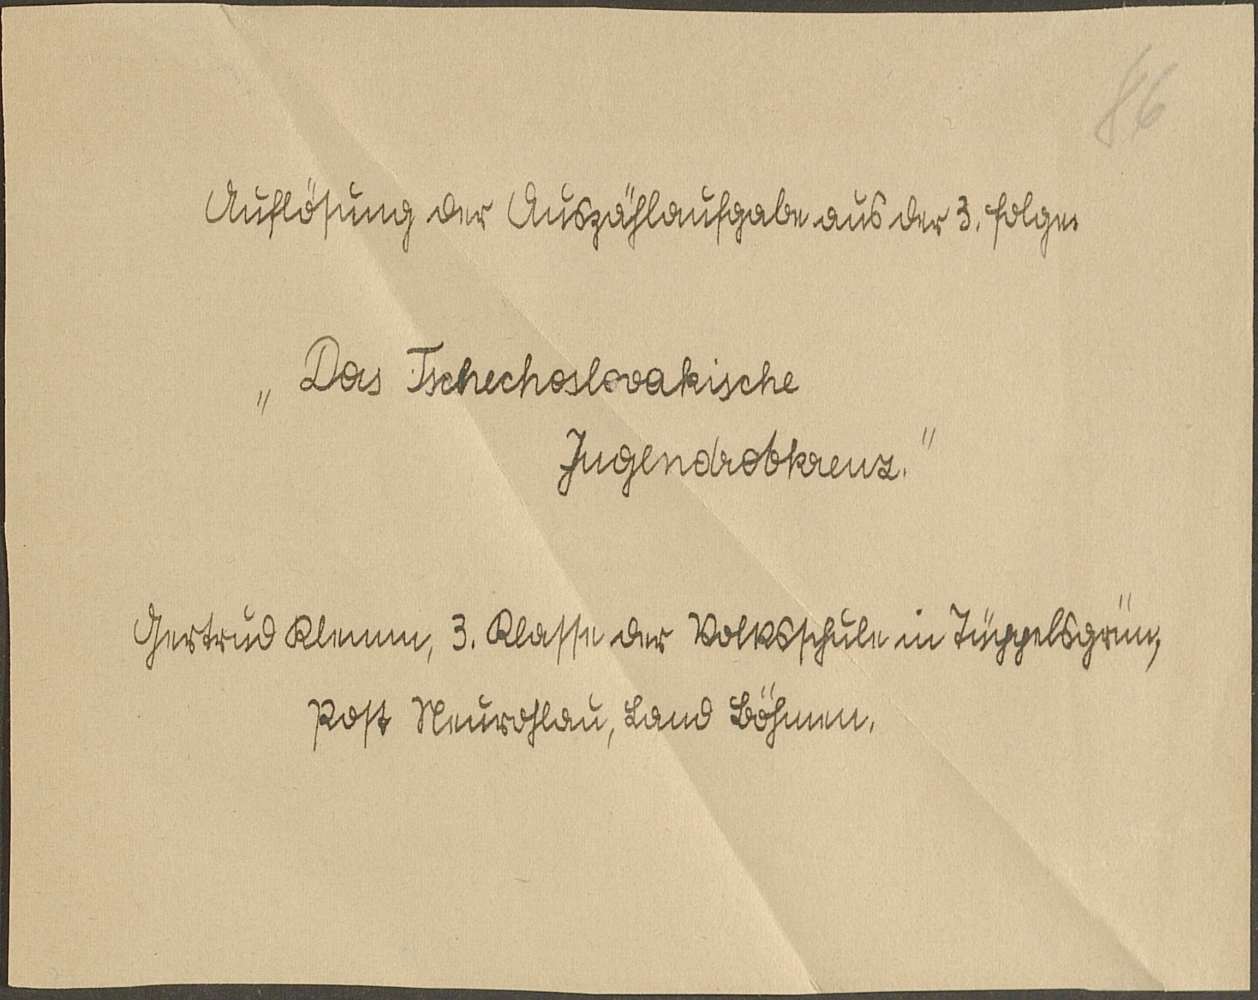 86
Auflösung der Auszählaufgabe aus der 3. Folge.
„Das Tschechoslovakische
Jugendrotkreuz."
Gertrud Klemm, 3. Klasse der Volksschule in Tüppelsgrün,
Post Neurohlau, Land Böhmen.